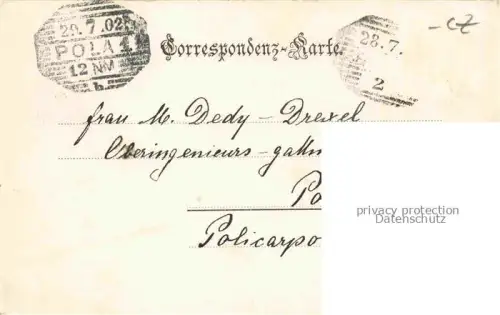 29.7.02
POLA 1
12 NM
b
Correspondenz-Karte.
28.7.
2
-cz
Frau M. Dedy-Drexel
Oberingenieurs-gattn
Po
Policarpo
privacy protection
Datenschutz